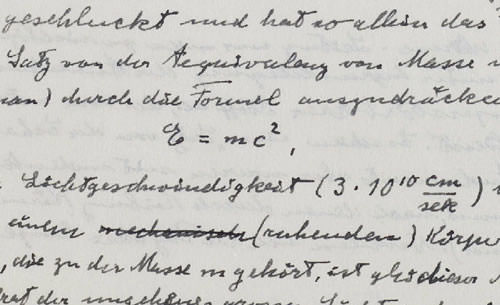 geschluckt und hat so allein das
Satz von der Aequivalenz von Masse u
man) durch die Formel auszudrücken
E = mc²,
Lichtgeschwindigkeit (3 . 10¹⁰ cm/sek)
einem mechanisch (ruhenden) Körpe
, die zu der Masse m gehört, ist gleich dieser
der ungeheuer grossen